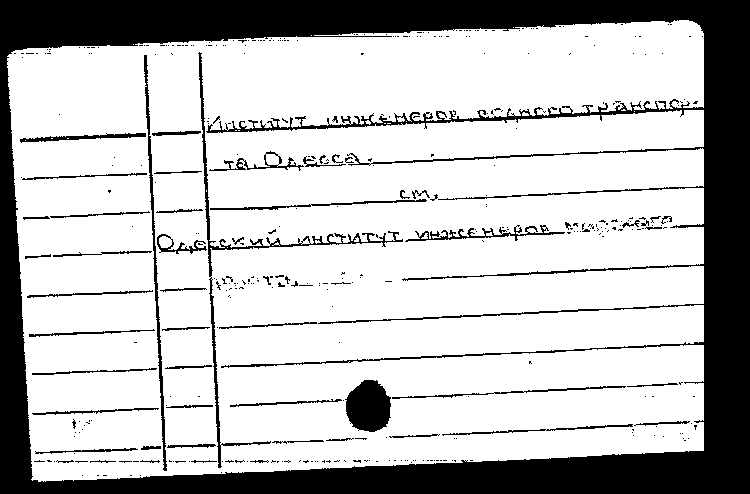 Институт инженеров водного транспор-
та. Одесса.
см.
Одесский институт инженеров морского
флота.